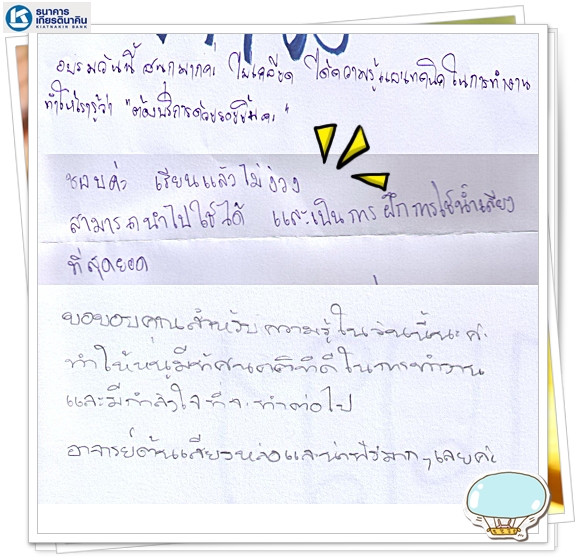 ธนาคาร
เกียรตินาคิน
KIATNAKIN BANK
อบรมวันนี้ สนุกมากค่ะ ไม่เครียด ได้ความรู้และเทคนิค ในการทำงาน
ทำให้เรารู้ว่า "ต้องบริการด้วยรอยยิ้มค่ะ"
ชอบค่ะ เรียนแล้วไม่ง่วง
สามารถนำไปใช้ได้ และเป็นการฝึกการใช้น้ำเสียง
ที่สุดยอด
ขอขอบคุณสำหรับ ความรู้ในวันนี้นะคะ
ทำให้หนูมีทัศนคติที่ดีในการทำงาน
และมีกำลังใจที่จะทำต่อไป
อาจารย์ต้นเสียงหล่อและน่าฟังมากๆ เลยค่ะ